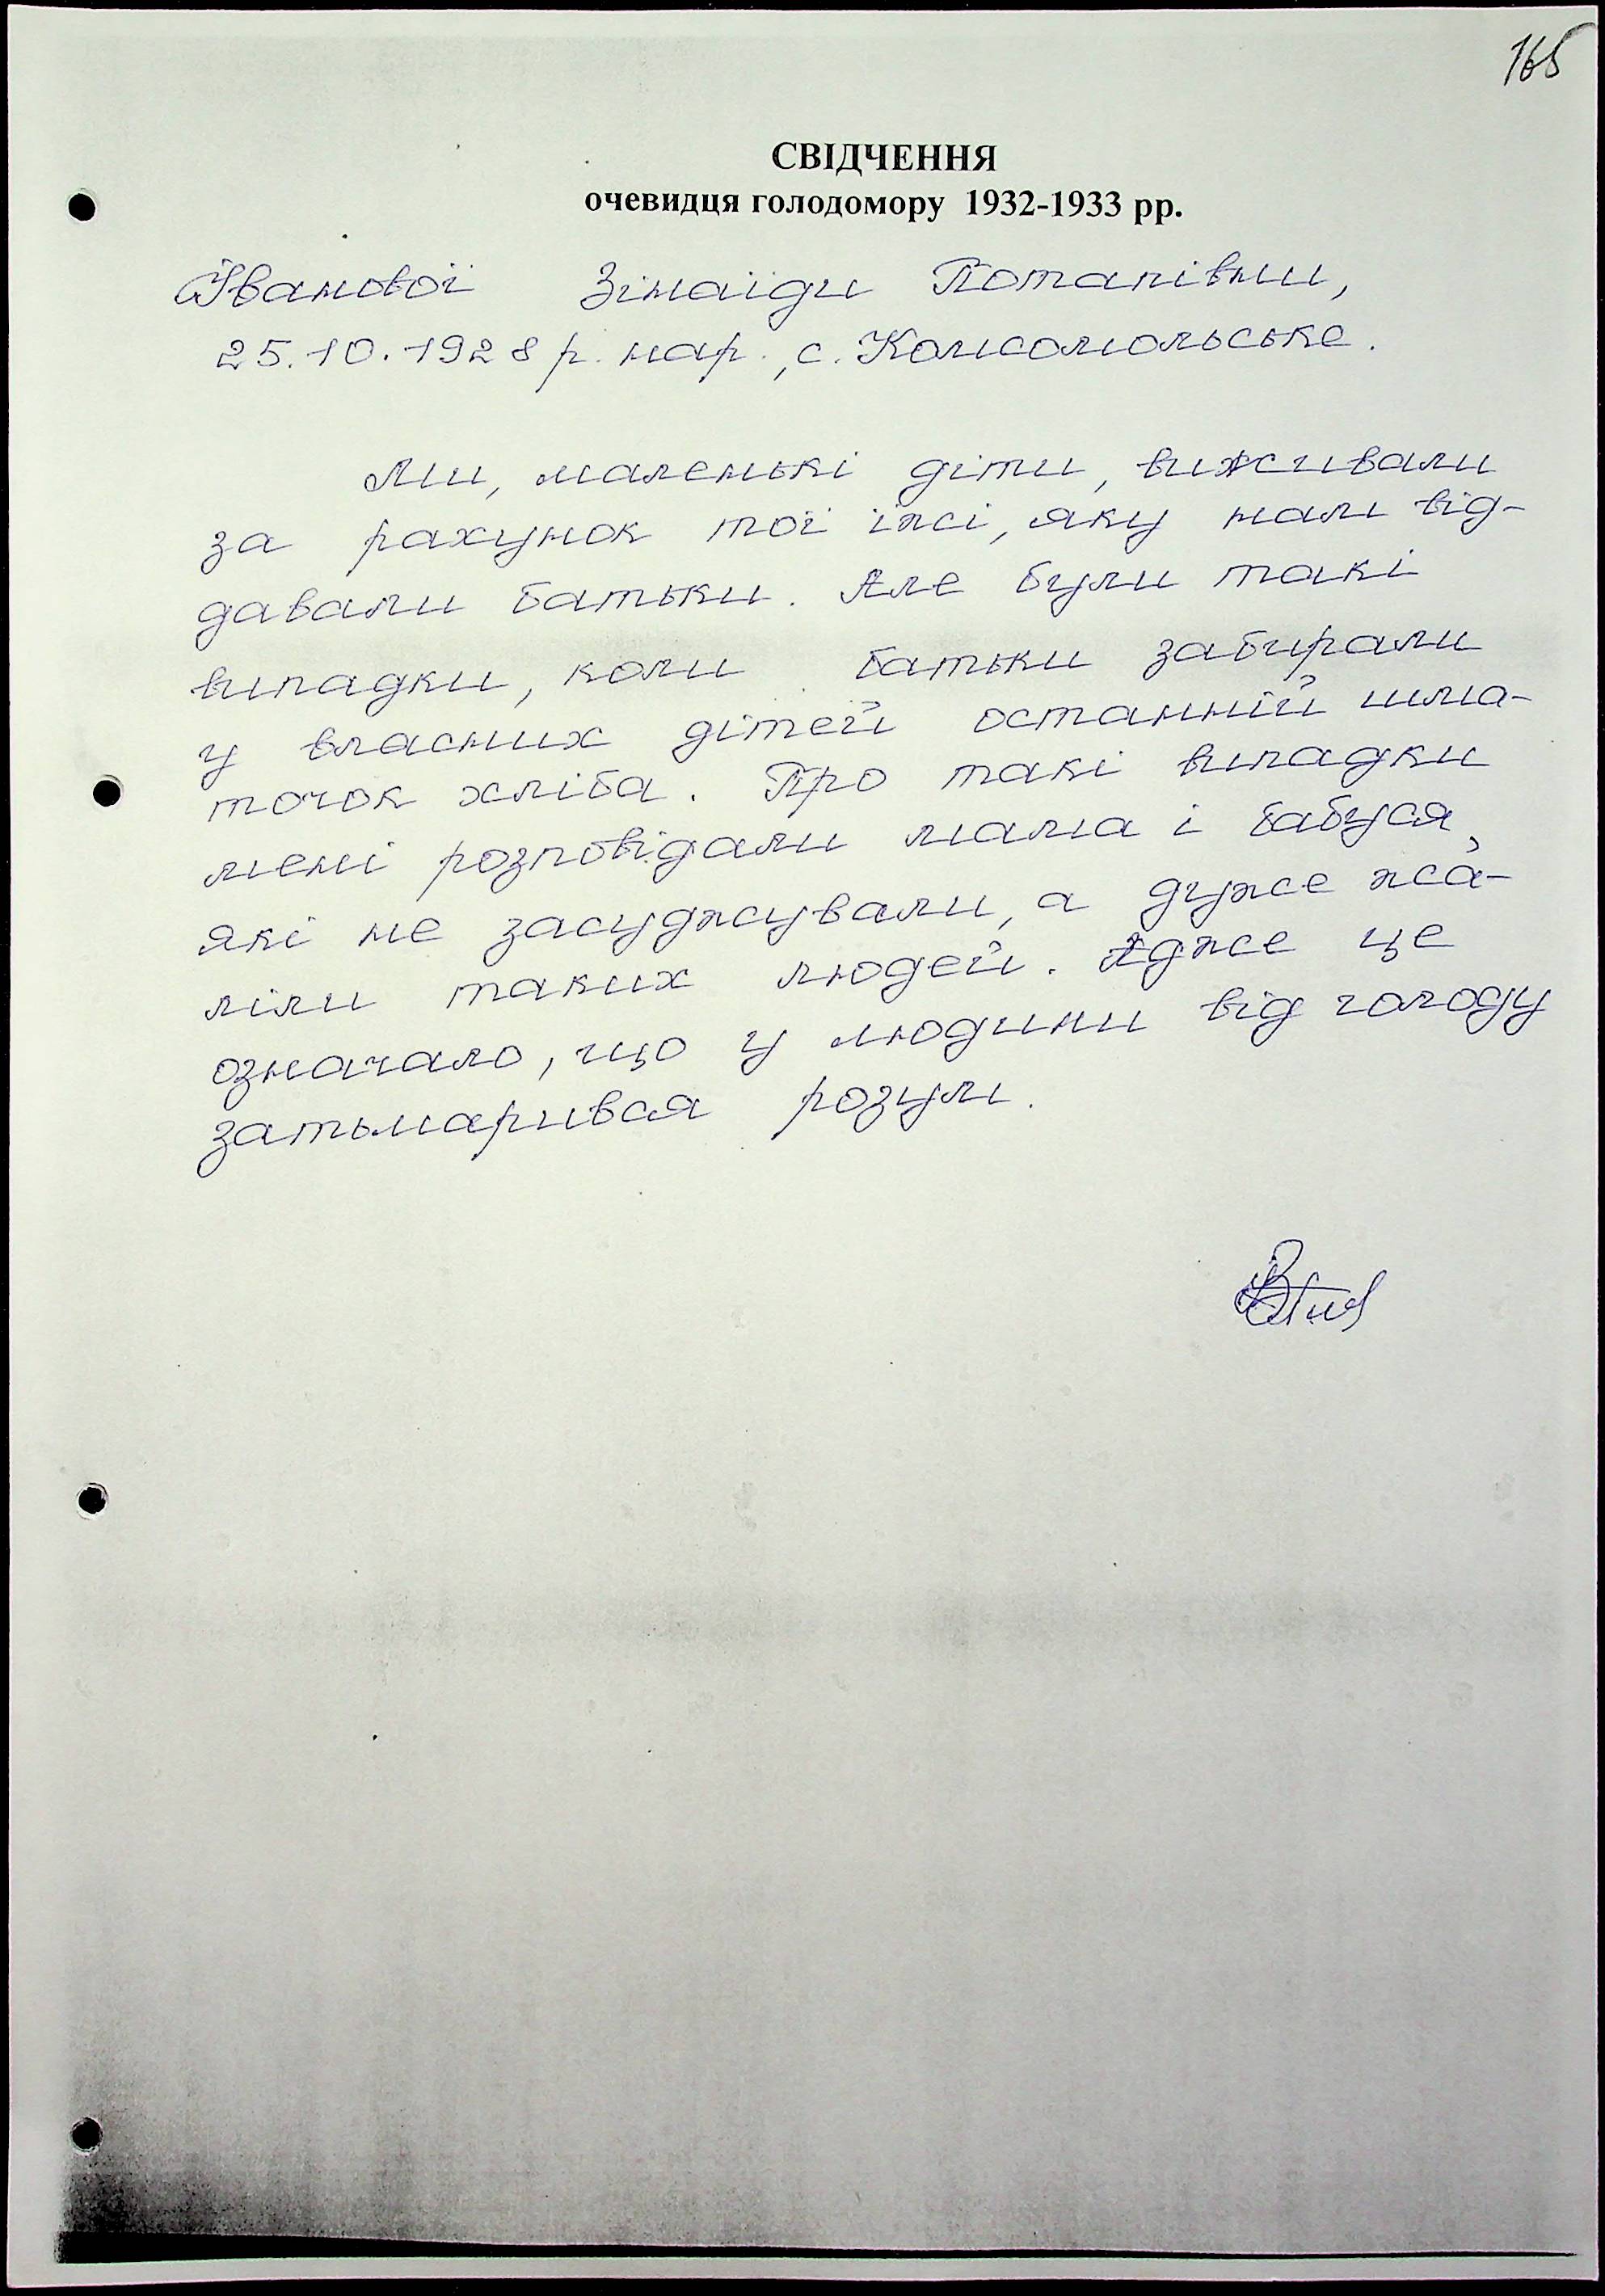 165
СВІДЧЕННЯ
очевидця голодомору 1932-1933 рр.
Іванової Зінаїди Потапівни,
25.10.1928 р. нар., с. Комсомольське.
Ми, маленькі діти, виживали
за рахунок тої їжі, яку нам від-
давали батьки. Але були такі
випадки, коли батьки забирали
у власних дітей останній шма-
точок хліба. Про такі випадки
мені розповідали мама і бабуся,
які не засуджували, а дуже жа-
ліли таких людей. Адже це
означало, що у людини від голоду
затьмарився розум.